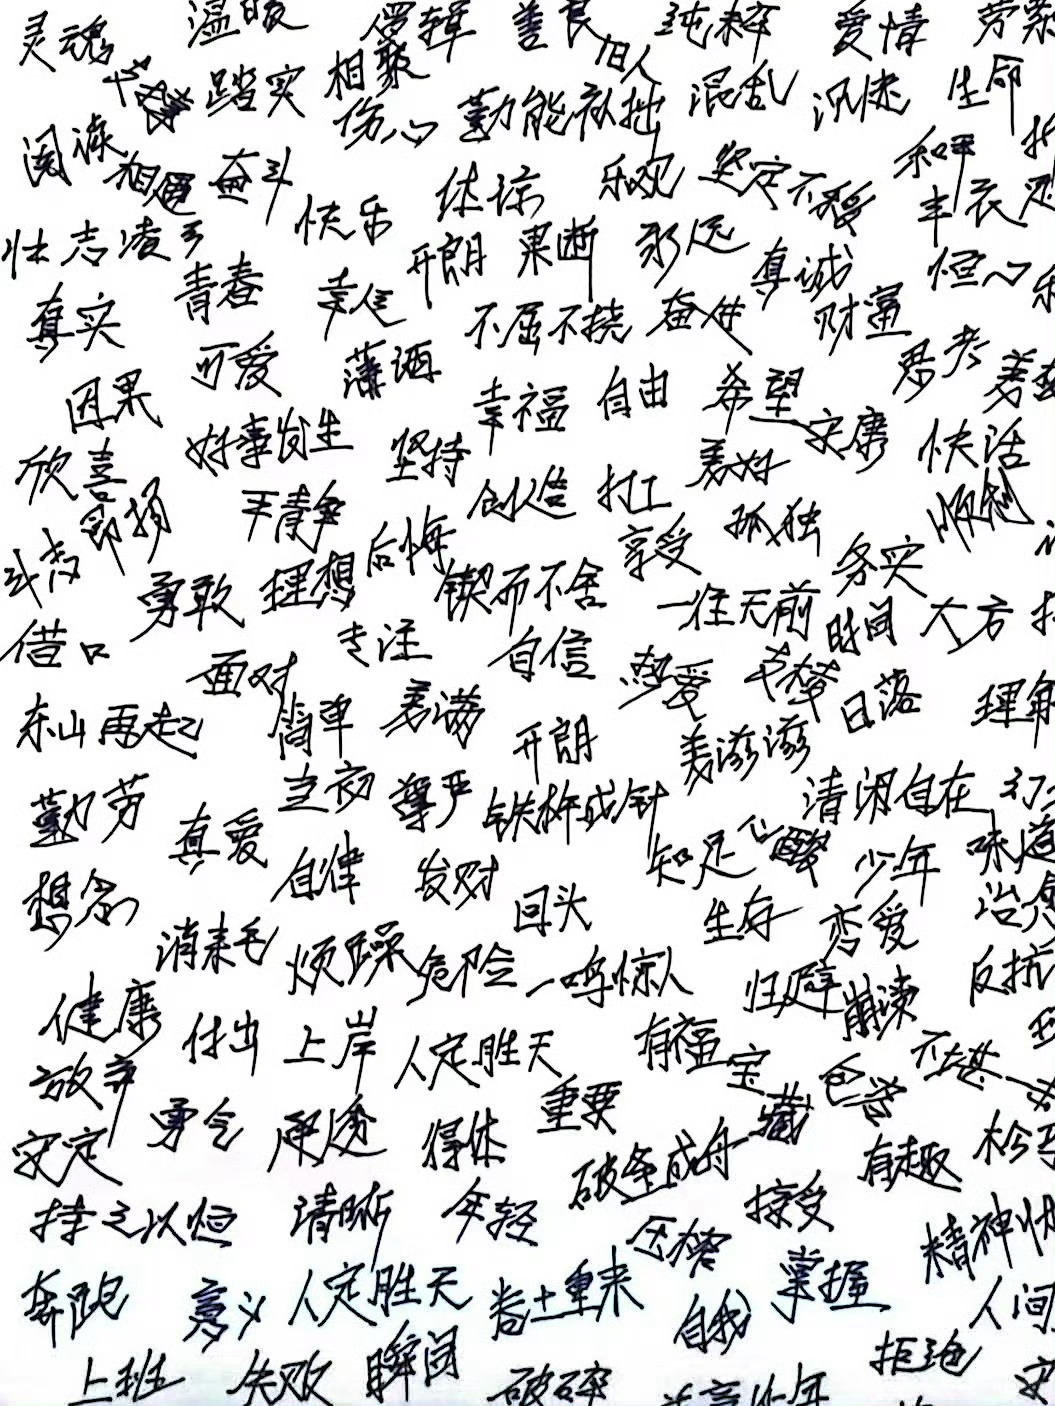 灵魂 温暖 逻辑 善良 纯粹 爱情
旧人
踏实 相聚 混乱 沉迷 生命
伤心 勤能补拙
阅读 相遇 奋斗 体谅 乐观 坚定不移
快乐 丰衣足
壮志凌云 开朗 果断 永远 真诚 恒心
青春 幸运
真实 不屈不挠 奋进 财富
可爱 潇洒 思考
因果 幸福 自由 希望 安康
好事发生 坚持 美好 快活
欣喜 创造 打工 顺利
平静 后悔 享受 孤独 务实
勇敢 理想 锲而不舍 一往无前 时间 大方
借口 专注 自信 热爱
面对 日落 理解
东山再起 简单 美满 开朗 美滋滋
勤劳 当初 尊严 铁杵成针 清闲自在
真爱 自律 反对 知足 心酸 少年 味道
想念 回头 生存 恋爱
消耗 烦躁 危险 一鸣惊人 归隐 崩溃 反抗
健康 付出 上岸 人定胜天 有福 宝藏 不堪一
放弃 勇气 用途 得体 重要
安定 破釜成舟 有趣
持之以恒 清晰 年轻 压榨 接受
奔跑 意义 人定胜天 卷土重来 自我 掌握 人间
上班 失败 瞬间 破碎 拒绝